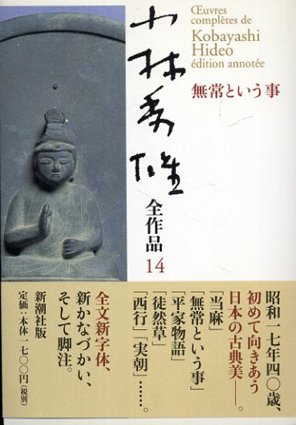 Œuvres
complètes de
Kobayashi
Hideo
édition annotée
無常という事
小林秀雄
全作品
14
昭和一七年四〇歳、
初めて向きあう
日本の古典美――。
「当麻」
「無常という事」
「平家物語」
「徒然草」
「西行」「実朝」……。
全文新字体、
新かなづかい、
そして脚注。
新潮社版
定価:本体一七〇〇円(税別)